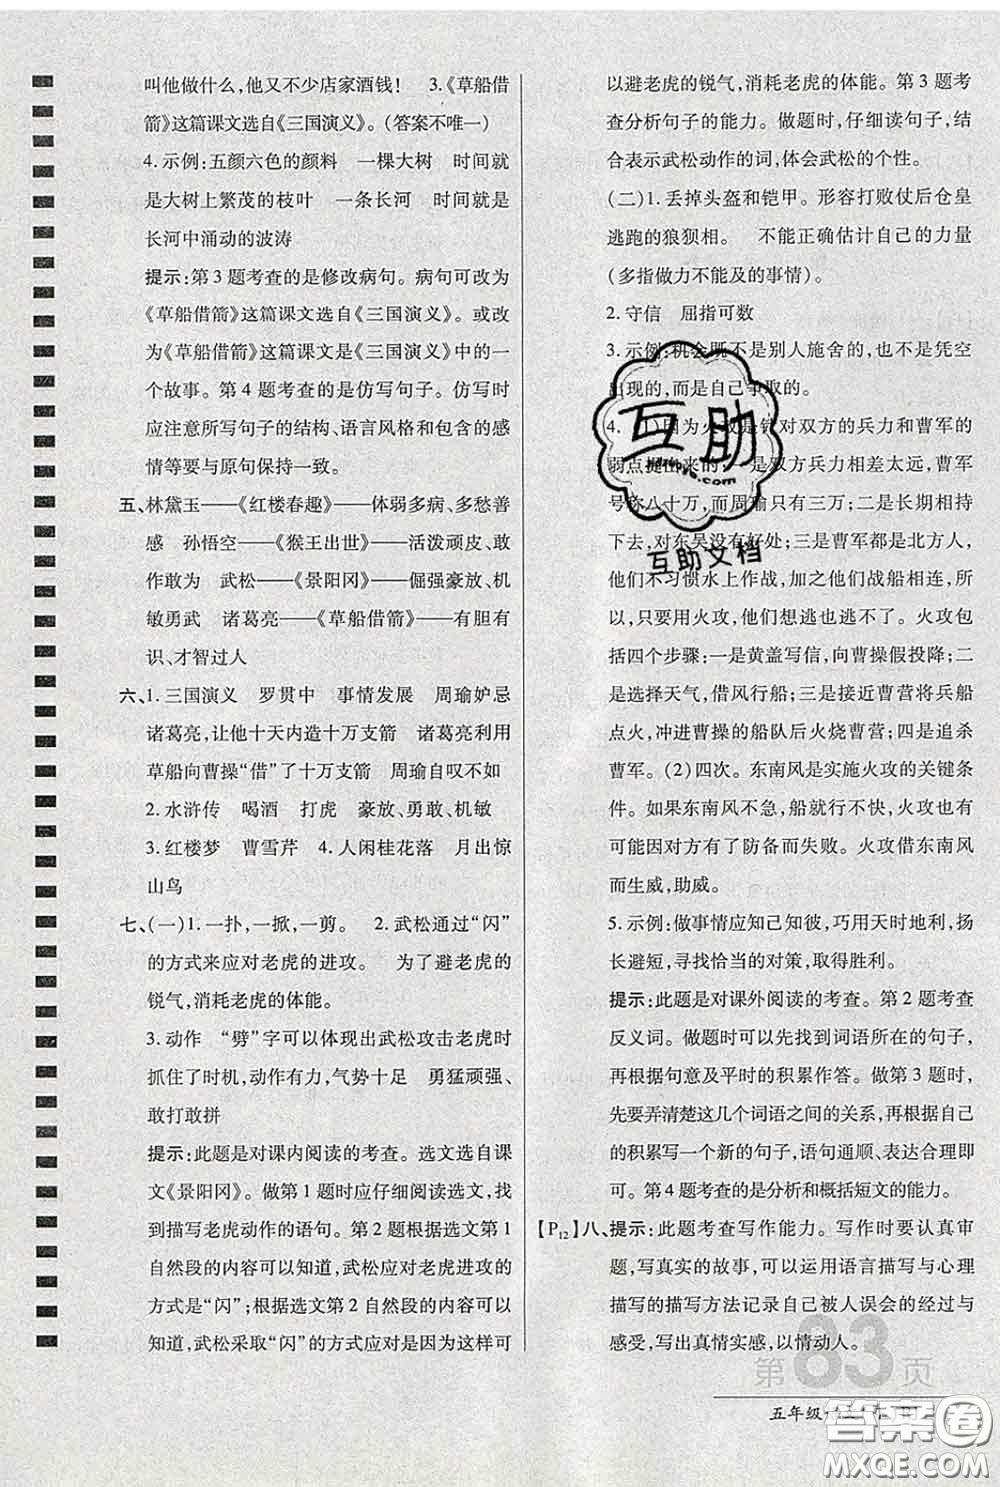 叫他做什么,他又不少店家酒钱!　3.《草船借
箭》这篇课文选自《三国演义》。(答案不唯一)
4. 示例:五颜六色的颜料　一棵大树　时间就
是大树上繁茂的枝叶　一条长河　时间就是
长河中涌动的波涛
提示:第 3 题考查的是修改病句。病句可改为
《草船借箭》这篇课文选自《三国演义》。或改
为《草船借箭》这篇课文是《三国演义》中的一
个故事。第 4 题考查的是仿写句子。仿写时
应注意所写句子的结构、语言风格和包含的感
情等要与原句保持一致。
五、林黛玉——《红楼春趣》——体弱多病、多愁善
感　孙悟空——《猴王出世》——活泼顽皮、敢
作敢为　武松——《景阳冈》——倔强豪放、机
敏勇武　诸葛亮——《草船借箭》——有胆有
识、才智过人
六、1. 三国演义　罗贯中　事情发展　周瑜妒忌
诸葛亮,让他十天内造十万支箭　诸葛亮利用
草船向曹操“借”了十万支箭　周瑜自叹不如
2. 水浒传　喝酒　打虎　豪放、勇敢、机敏
3. 红楼梦　曹雪芹　4. 人闲桂花落　月出惊
山鸟
七、(一)1. 一扑,一掀,一剪。　2. 武松通过“闪”
的方式来应对老虎的进攻。　为了避老虎的
锐气,消耗老虎的体能。
3. 动作　“劈”字可以体现出武松攻击老虎时
抓住了时机,动作有力,气势十足　勇猛顽强、
敢打敢拼
提示:此题是对课内阅读的考查。选文选自课
文《景阳冈》。做第 1 题时应仔细阅读选文,找
到描写老虎动作的语句。第 2 题根据选文第 1
自然段的内容可以知道,武松应对老虎进攻
的方式是“闪”;根据选文第 2 自然段的内容可以
知道,武松采取“闪”的方式应对是因为这样可
以避老虎的锐气,消耗老虎的体能。第 3 题考
查分析句子的能力。做题时,仔细读句子,结
合表示武松动作的词,体会武松的个性。
(二)1. 丢掉头盔和铠甲。形容打败仗后仓皇
逃跑的狼狈相。　不能正确估计自己的力量
(多指做力不能及的事情)。
2. 守信　屈指可数
3. 示例:机会既不是别人施舍的,也不是凭空
出现的,而是自己争取的。
4. (1)因为火攻是针对双方的兵力和曹军的
弱点提出来的:一是双方兵力相差太远,曹军
号称八十万,而周瑜只有三万;二是长期相持
下去,对东吴没有好处;三是曹军都是北方人,
他们不习惯水上作战,加之他们战船相连,所
以,只要用火攻,他们想逃也逃不了。火攻包
括四个步骤:一是黄盖写信,向曹操假投降;二
是选择天气,借风行船;三是接近曹营将兵船
点火,冲进曹操的船队后火烧曹营;四是追杀
曹军。(2)四次。东南风是实施火攻的关键条
件。如果东南风不急,船就行不快,火攻也许
可能因为对方有了防备而失败。火攻借东南风
而生威,助威。
5. 示例:做事情应知己知彼,巧用天时地利,扬
长避短,寻找恰当的对策,取得胜利。
提示:此题是对课外阅读的考查。第 2 题考查
反义词。做题时可以先找到词语所在的句子,
再根据句意及平时的积累作答。做第 3 题时,
先要弄清楚这几个词语之间的关系,再根据自己
的积累写一个新的句子,语句通顺、表达合理即
可。第 4 题考查的是分析和概括短文的能力。
【P12】八、提示:此题考查写作能力。写作时要认真审
题,写真实的故事,可以运用语言描写与心理
描写的描写方法记录自己被人误会的经过与
感受,写出真情实感,以情动人。
第83页
五年级
互助
.com
互助文档
答案卷
MXQE.COM